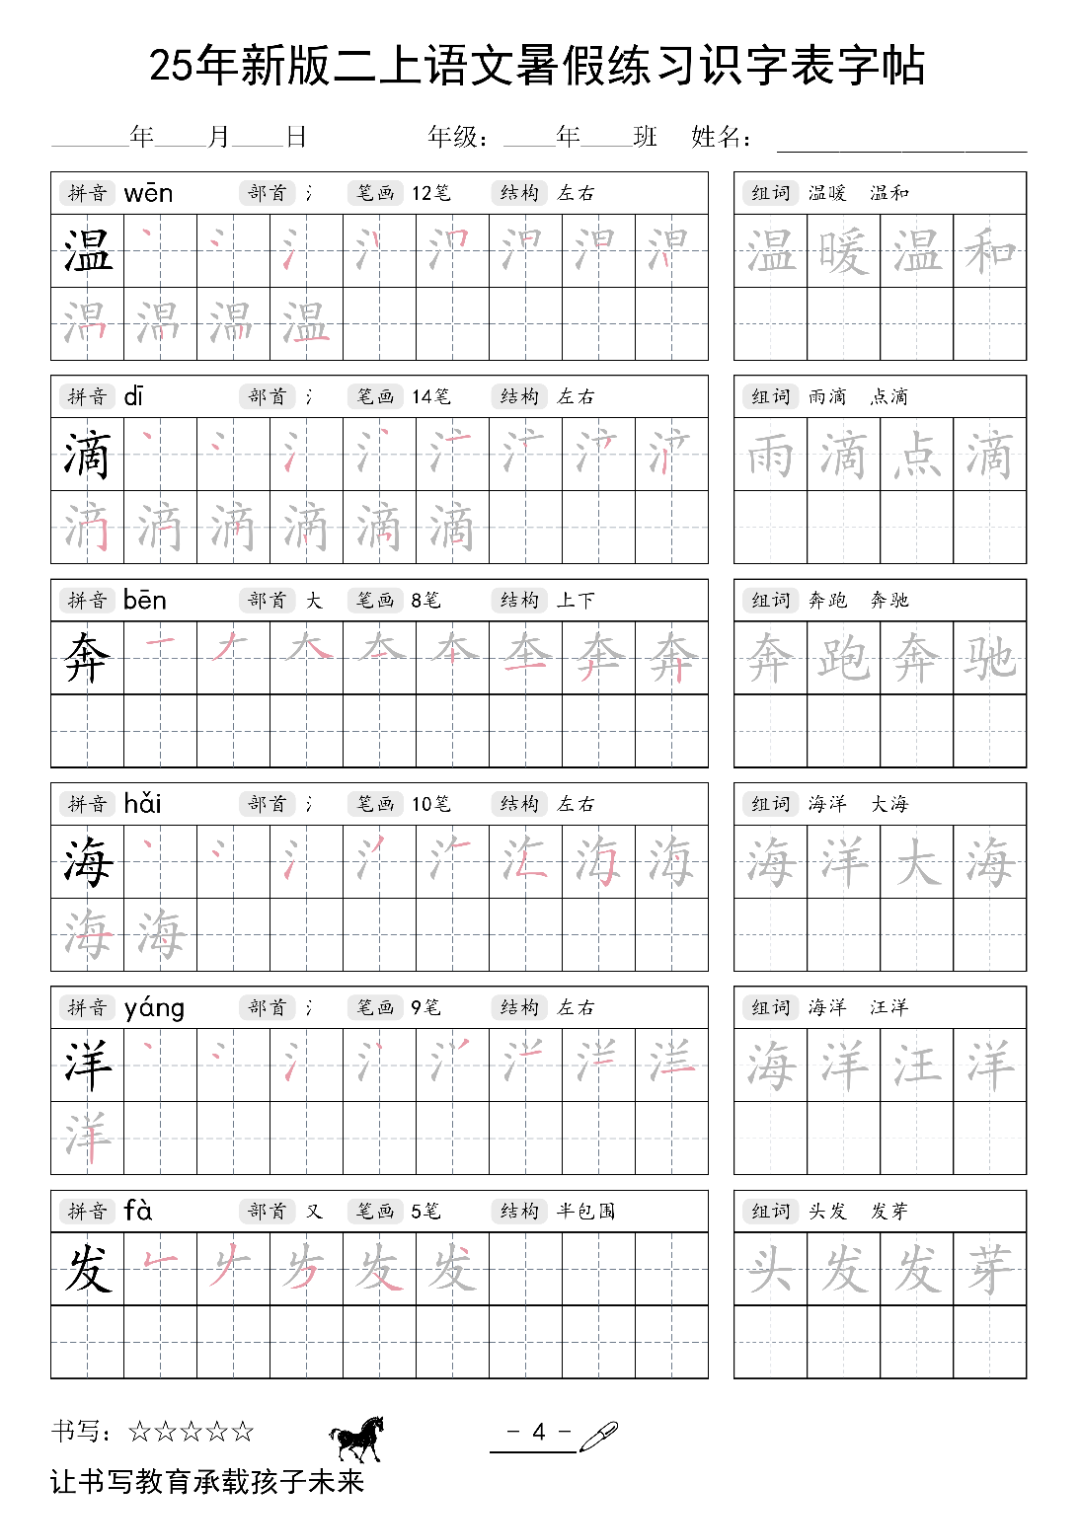 25年新版二上语文暑假练习识字表字帖
年 月 日 年级： 年 班 姓名：
拼音 wēn 部首 氵 笔画 12笔 结构 左右 组词 温暖 温和
温 温 暖 温 和
拼音 dī 部首 氵 笔画 14笔 结构 左右 组词 雨滴 点滴
滴 雨 滴 点 滴
滴
拼音 bēn 部首 大 笔画 8笔 结构 上下 组词 奔跑 奔驰
奔 奔 奔 跑 奔 驰
拼音 hǎi 部首 氵 笔画 10笔 结构 左右 组词 海洋 大海
海 海 洋 大 海
海 海
拼音 yáng 部首 氵 笔画 9笔 结构 左右 组词 海洋 汪洋
洋 海 洋 汪 洋
洋
拼音 fà 部首 又 笔画 5笔 结构 半包围 组词 头发 发芽
发 发 头 发 发 芽
书写：☆☆☆☆☆ - 4 -
让书写教育承载孩子未来